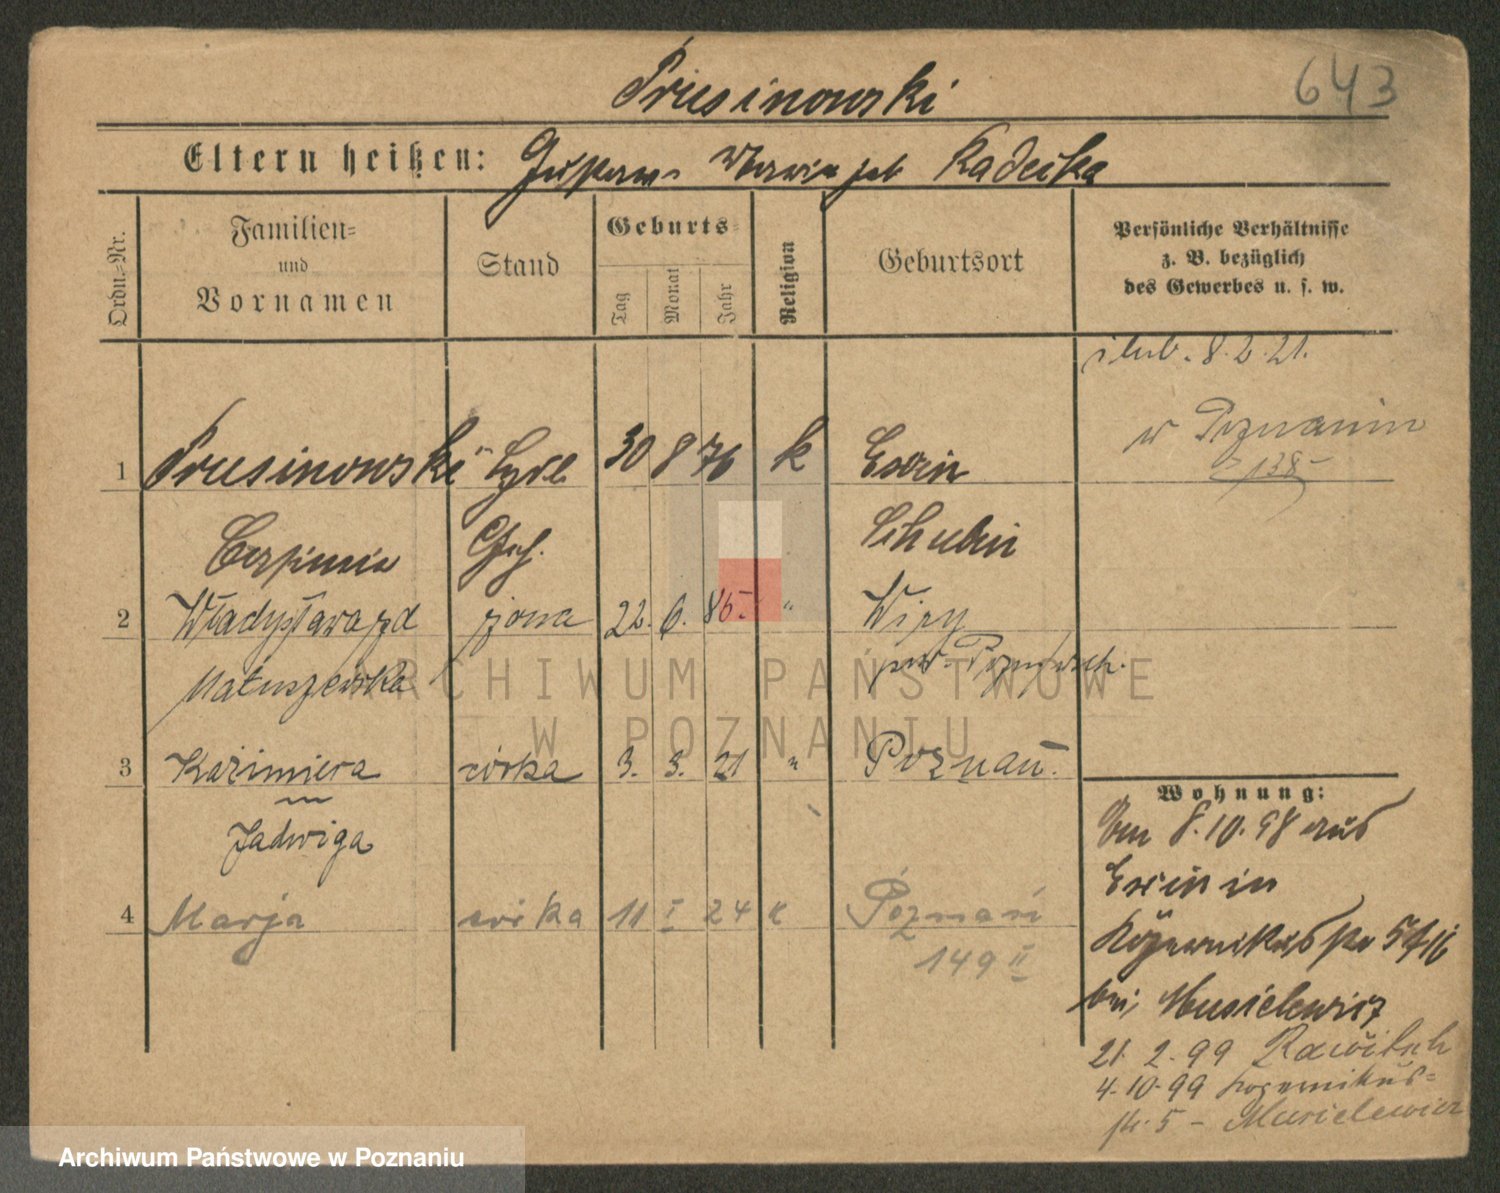 643
Prusinowski
Eltern heißen: Gustaw Maria geb Kadecka
Ordn.-Nr.
Familien-
und
Vornamen
Stand
Geburts-
Tag
Monat
Jahr
Religion
Geburtsort
Persönliche Verhältnisse
z. B. bezüglich
des Gewerbes u. s. w.
ślub. 8.2.21.
w Poznaniu
138
1 Prusinowski 30 8 76 k Exin
Schubin
2 Władysława zd żona 22. 6. 86. " Wiry
Matuszewska pow. Pozn. wsch.
3 Kazimiera córka 3. 3. 21 " Poznań.
Jadwiga
4 Marja córka 11 I 24 k Poznań
149 II
Wohnung:
Am 8.10.98 aus
Exin in
bei Musielewicz
21. 2. 99 Rawitsch
4.10.99 Kopernikus-
str. 5 - Musielewicz
ARCHIWUM PAŃSTWOWE
W POZNANIU
Archiwum Państwowe w Poznaniu